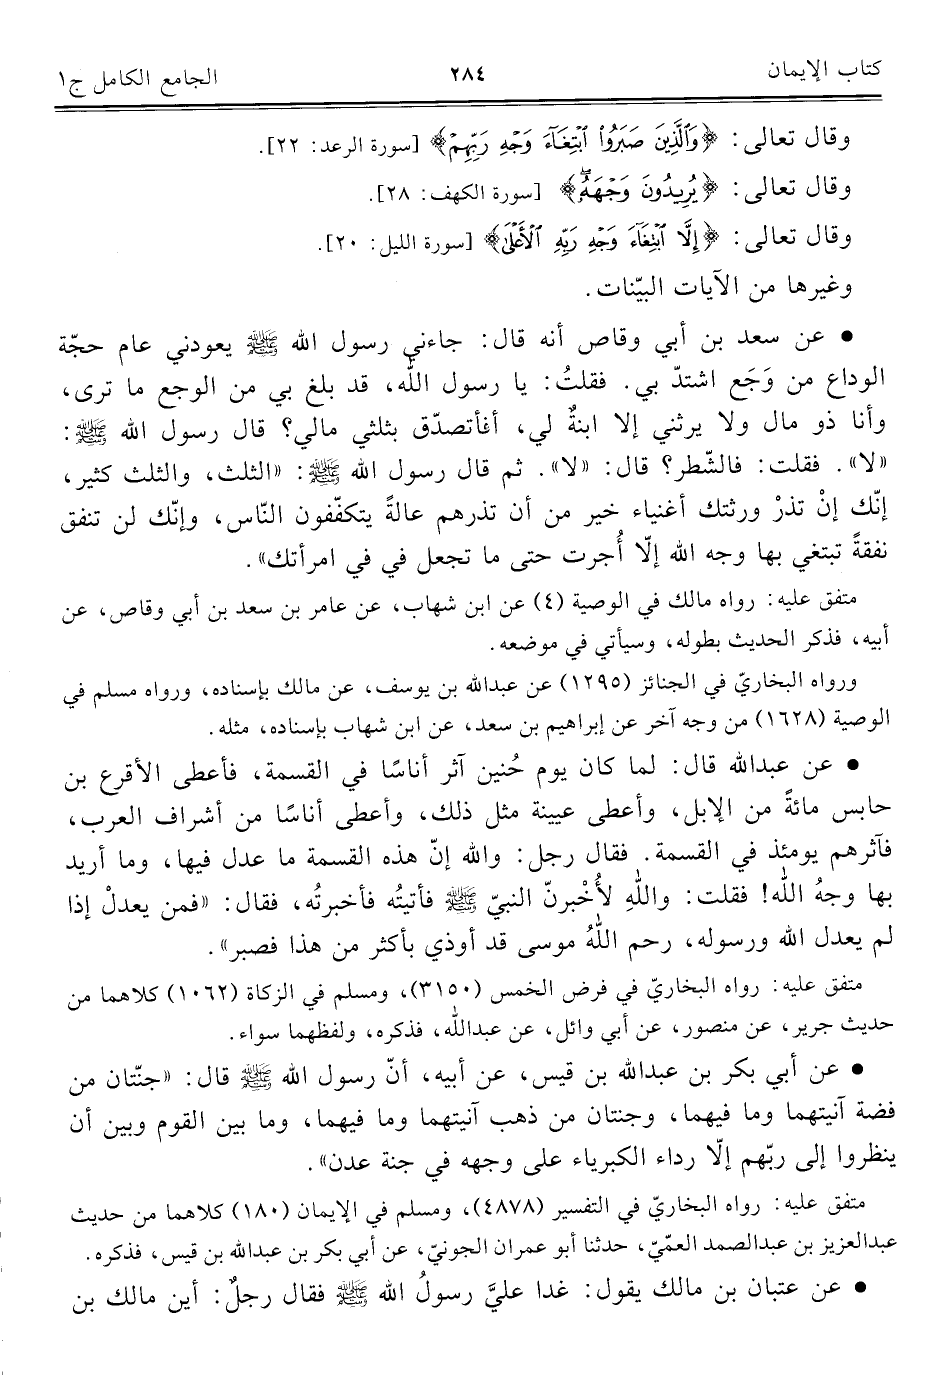 كتاب الإيمان ٢٨٤ الجامع الكامل ج١
وقال تعالى: ﴿وَالَّذِينَ صَبَرُوا ابْتِغَاءَ وَجْهِ رَبِّهِمْ﴾ [سورة الرعد: ٢٢].
وقال تعالى: ﴿يُرِيدُونَ وَجْهَهُ﴾ [سورة الكهف: ٢٨].
وقال تعالى: ﴿إِلَّا ابْتِغَاءَ وَجْهِ رَبِّهِ الْأَعْلَى﴾ [سورة الليل: ٢٠].
وغيرها من الآيات البيّنات.
• عن سعد بن أبي وقاص أنه قال: جاءني رسول الله ﷺ يعودني عام حجّة
الوداع من وَجَع اشتدّ بي. فقلتُ: يا رسول الله، قد بلغ بي من الوجع ما ترى،
وأنا ذو مال ولا يرثني إلا ابنةٌ لي، أفأتصدّق بثلثي مالي؟ قال رسول الله ﷺ:
«لا». فقلت: فالشّطر؟ قال: «لا». ثم قال رسول الله ﷺ: «الثلث، والثلث كثير،
إنّك إنْ تذرْ ورثتك أغنياء خير من أن تذرهم عالةً يتكفّفون النّاس، وإنّك لن تنفق
نفقةً تبتغي بها وجه الله إلّا أُجرت حتى ما تجعل في في امرأتك».
متفق عليه: رواه مالك في الوصية (٤) عن ابن شهاب، عن عامر بن سعد بن أبي وقاص، عن
أبيه، فذكر الحديث بطوله، وسيأتي في موضعه.
ورواه البخاريّ في الجنائز (١٢٩٥) عن عبدالله بن يوسف، عن مالك بإسناده، ورواه مسلم في
الوصية (١٦٢٨) من وجه آخر عن إبراهيم بن سعد، عن ابن شهاب بإسناده، مثله.
• عن عبدالله قال: لما كان يوم حُنين آثر أناسًا في القسمة، فأعطى الأقرع بن
حابس مائةً من الإبل، وأعطى عيينة مثل ذلك، وأعطى أناسًا من أشراف العرب،
فآثرهم يومئذ في القسمة. فقال رجل: والله إنّ هذه القسمة ما عدل فيها، وما أريد
بها وجهُ الله! فقلت: واللهِ لأُخْبرنّ النبيّ ﷺ فأتيتُه فأخبرتُه، فقال: «فمن يعدلْ إذا
لم يعدل الله ورسوله، رحم اللهُ موسى قد أوذي بأكثر من هذا فصبر».
متفق عليه: رواه البخاريّ في فرض الخمس (٣١٥٠)، ومسلم في الزكاة (١٠٦٢) كلاهما من
حديث جرير، عن منصور، عن أبي وائل، عن عبدالله، فذكره، ولفظهما سواء.
• عن أبي بكر بن عبدالله بن قيس، عن أبيه، أنّ رسول الله ﷺ قال: «جنّتان من
فضة آنيتهما وما فيهما، وجنتان من ذهب آنيتهما وما فيهما، وما بين القوم وبين أن
ينظروا إلى ربّهم إلّا رداء الكبرياء على وجهه في جنة عدن».
متفق عليه: رواه البخاريّ في التفسير (٤٨٧٨)، ومسلم في الإيمان (١٨٠) كلاهما من حديث
عبدالعزيز بن عبدالصمد العمّيّ، حدثنا أبو عمران الجونيّ، عن أبي بكر بن عبدالله بن قيس، فذكره.
• عن عتبان بن مالك يقول: غدا عليَّ رسولُ الله ﷺ فقال رجلٌ: أين مالك بن